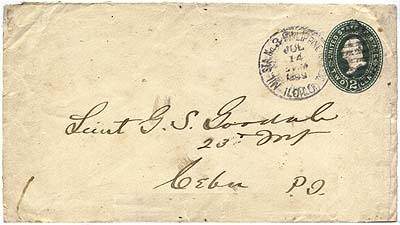 MIL. STA. No. 3 PHILIPPINE
JUL
14
1899
ILOILO.
UNITED STATES
2
Lieut G. S. Goodale
23d Inf
Cebu P.I.